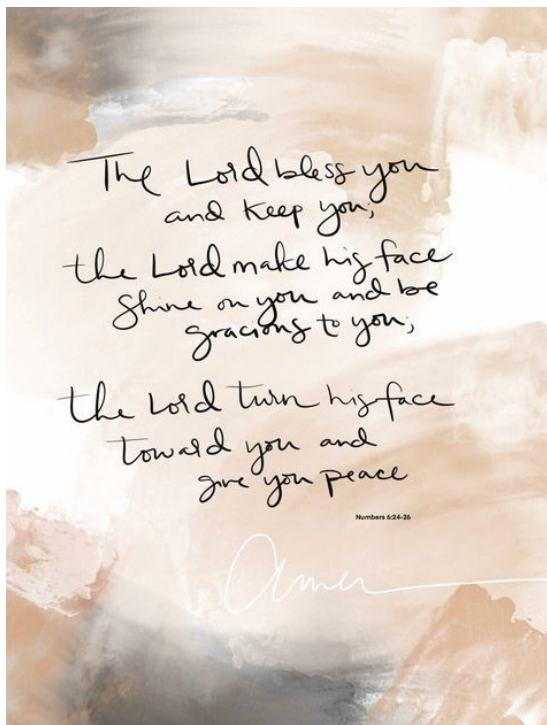 The Lord bless you
and keep you;
the Lord make his face
shine on you and be
gracious to you;
the Lord turn his face
toward you and
give you peace
Numbers 6:24-26
Amen